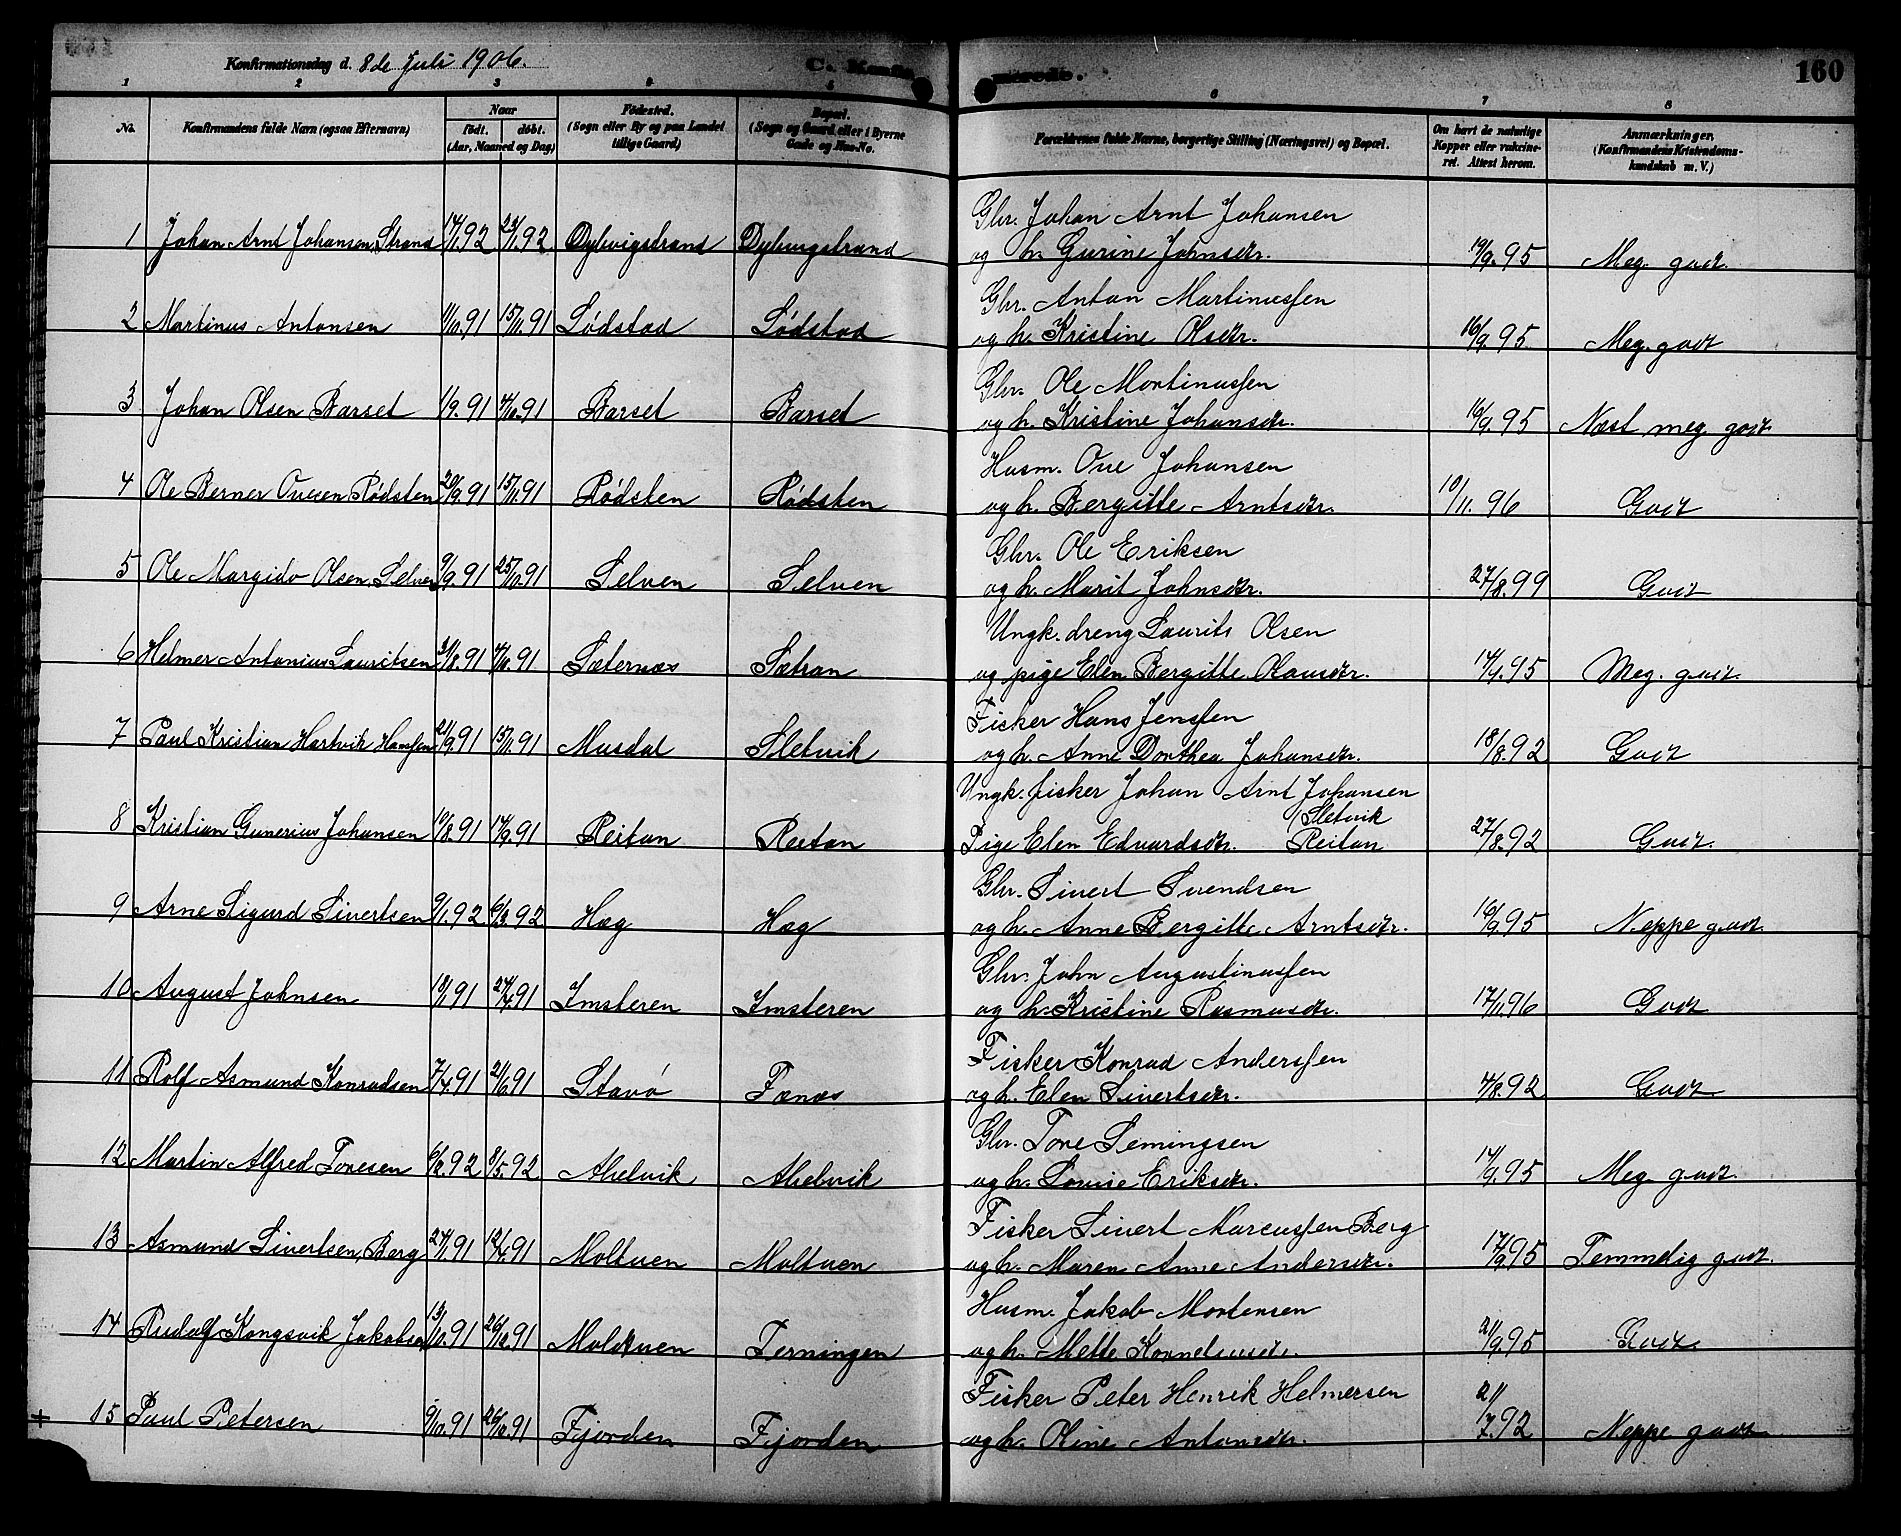 Konfirmationsdag d. 8de Juli 1906.
C. Konfirmerede.
160
1 2 3 4 5 6 7 8
No.
Konfirmandens fulde Navn (ogsaa Efternavn)
Naar
født. døbt.
(Aar, Maaned og Dag)
Fødested.
(Sogn eller By og paa Landet
tillige Gaard)
Bopæl.
(Sogn og Gaard eller i Byerne
Gade og Hus-No.
Forældrenes fulde Navne, borgerlige Stilling (Næringsvei) og Bopæl.
Om havt de naturlige
Kopper eller vakcine-
ret. Attest herom.
Anmærkninger.
(Konfirmandens Kristendoms-
kundskab m. V.)
Gbr. Johan Arnt Johansen
1 Johan Arnt Johansen Strand 17/1 92 Dybvigstrand Dybvigstrand og h. Gurine Johnsdtr. 19/9.95 Meg. godt.
Gbr. Anton Martinussen
2 Martinus Antonsen 11/10.91 15/11.91 Lødstad Lødstad og h. Kristine Olsdtr. 16/9.95 Meg. godt
Gbr. Ole Martinussen
3 Johan Olsen Barset 1/9.91 4/10.91 Barset Barset og h. Kristine Johansdtr. 16/9.95 Næst meg. godt
Husm. Ove Johansen
4 Ole Berner Ovesen Rødsten 20/9.91 15/11.91 Rødsten Rødsten og h. Bergitte Arntsdtr. 10/11.96 Godt
Gbr. Ole Eriksen
5 Ole Margido Olsen Selven 9/9.91 25/10.91 Selven Selven og h. Marit Johnsdtr. 27/8.99 Godt
Ungk. dreng Laurits Olsen
6 Helmer Antonius Lauritsen 31/8.91 4/10.91 Sæternæs Sætran og pige Elen Bergitte Olausdtr. 95 Meg. godt.
Fisker Hans Jenssen
7 Paul Kristian Hartvik Hanssen 21/9.91 15/11.91 Musdal Sletvik og h. Anne Dorthea Johansdtr. 18/8.92 Godt
Ungk. fisker Johan Arnt Johansen
Sletvik
8 Kristian Gunerius Johansen 10/8.91 91 Reitan Reitan Pige Elen Edvardsdtr. Reitan 27/8.92 Godt.
Gbr. Sivert Svendsen
9 Arne Sigurd Sivertsen 9/1.92 6/3.92 Hæg Hæg og h. Anne Bergitte Arntsdtr. 16/9.95 Neppe godt.
Gbr. John Augustinussen
10 August Johnsen 91 91 Imsteren Imsteren og h. Kristine Rasmusdtr. 17/11.96 Godt
Fisker Konrad Anderssen
11 Rolf Asmund Konradsen 7/4.91 21/6.91 Stavø Fænæs og h. Elen Sivertsdtr. 4/8.92 Godt
Gbr. Tore Lemingsen
12 Martin Alfred Toresen 6/2.92 8/5.92 Ahelvik Ahelvik og h. Lovise Eriksdtr. 14/9.95 Meg. godt.
Fisker Sivert Marcussen Berg
13 Asmund Sivertsen Berg 27/1.91 12/4.91 Moltuen Moltuen og h. Maren Anne Andersdtr. 17/9.95 Temmelig godt.
Husm. Jakob Mortensen
14 Rudolf Kongsvik Jakobsen 13/10.91 26/12.91 Moldtuen Terningen og h. Mette Korneliusdtr. 21/9.95 Godt.
Fisker Peter Henrik Helmersen
+ 15 Paul Petersen 9/10.91 26/12.91 Fjorden Fjorden og h. Oline Antonsdtr. 21/7.92 Neppe godt